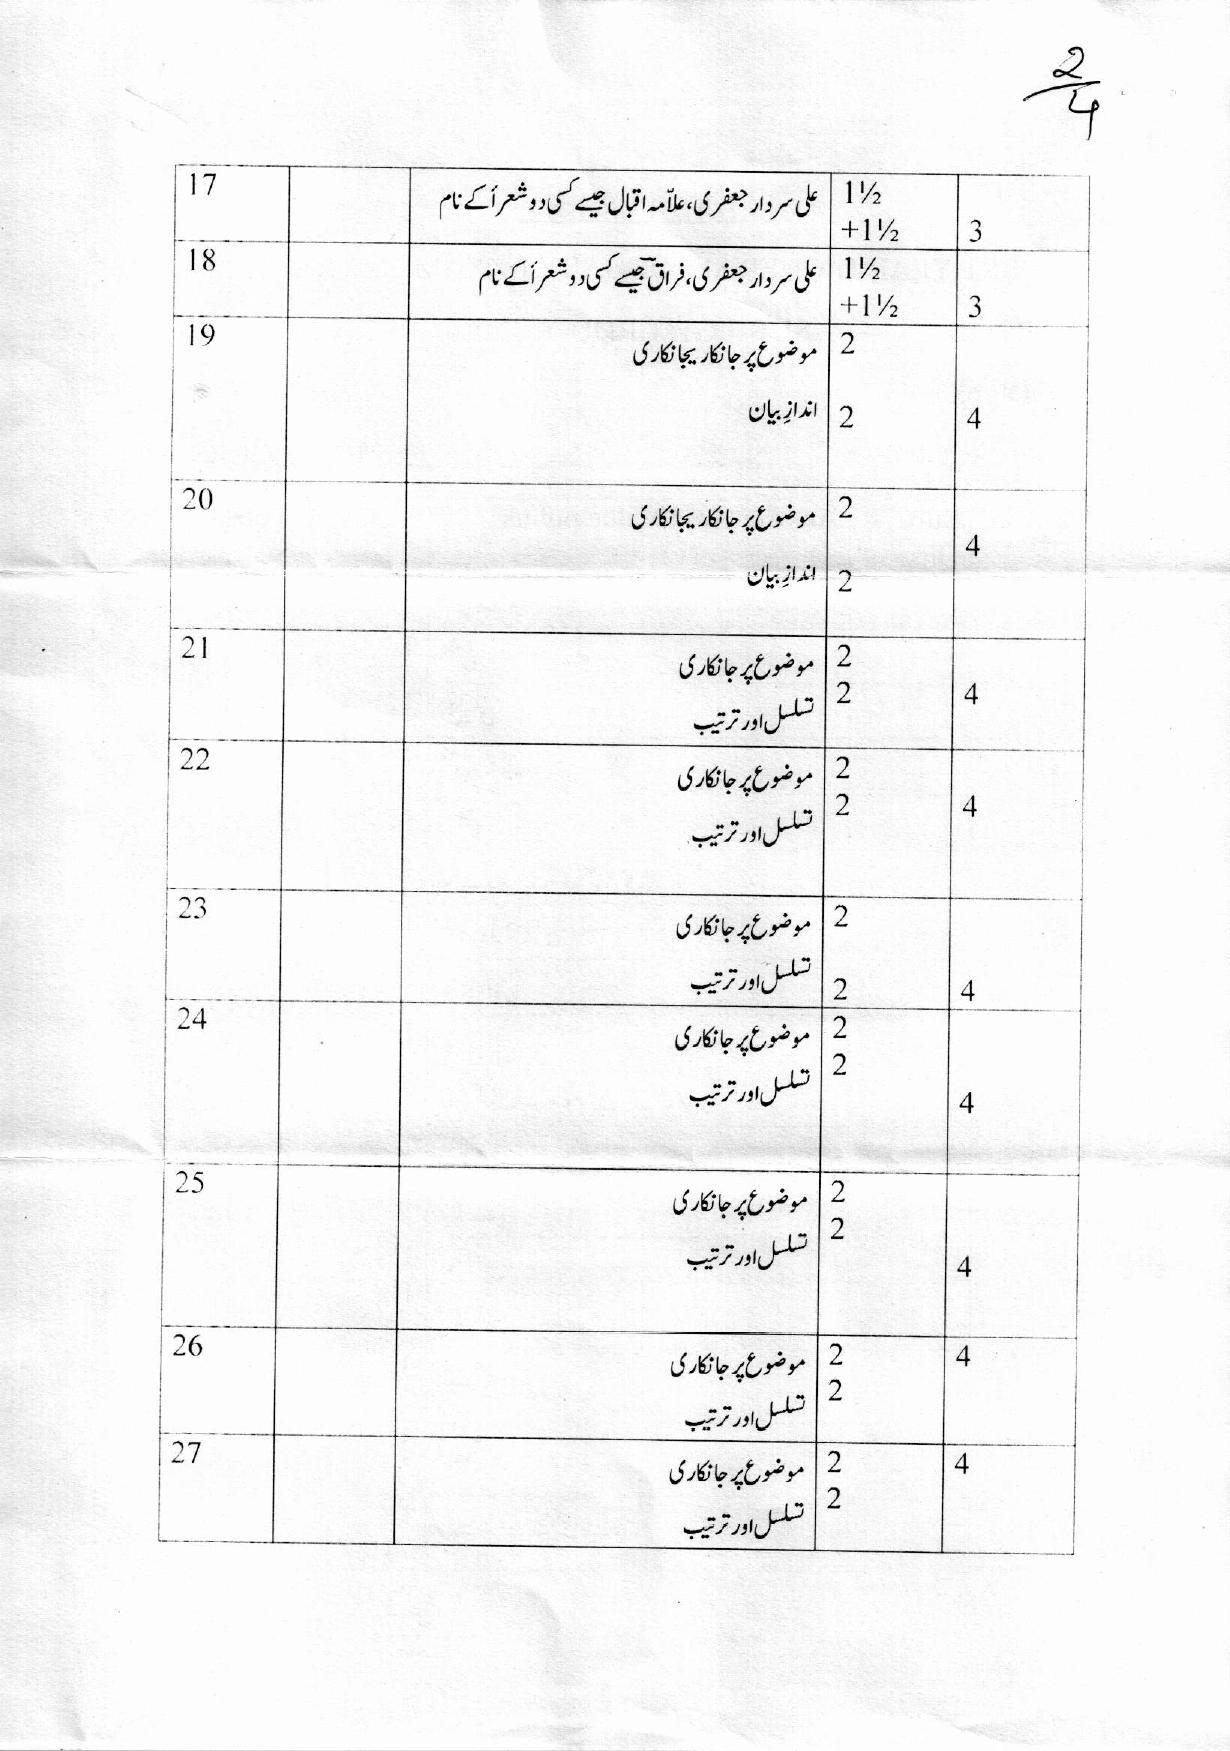 2/4
17 علی سردار جعفری، علاّمہ اقبال جیسے کسی دو شعرأ کے نام 1½
+1½ 3
18 علی سردار جعفری، فراق جیسے کسی دو شعرأ کے نام 1½
+1½ 3
19 موضوع پر جانکار یجانکاری 2
اندازِ بیان 2 4
20 موضوع پر جانکار یجانکاری 2
4
اندازِ بیان 2
21 موضوع پر جانکاری 2
تسلسل اور ترتیب 2 4
22 موضوع پر جانکاری 2
تسلسل اور ترتیب 2 4
23 موضوع پر جانکاری 2
تسلسل اور ترتیب 2 4
24 موضوع پر جانکاری 2
تسلسل اور ترتیب 2
4
25 موضوع پر جانکاری 2
تسلسل اور ترتیب 2
4
26 موضوع پر جانکاری 2 4
تسلسل اور ترتیب 2
27 موضوع پر جانکاری 2 4
تسلسل اور ترتیب 2